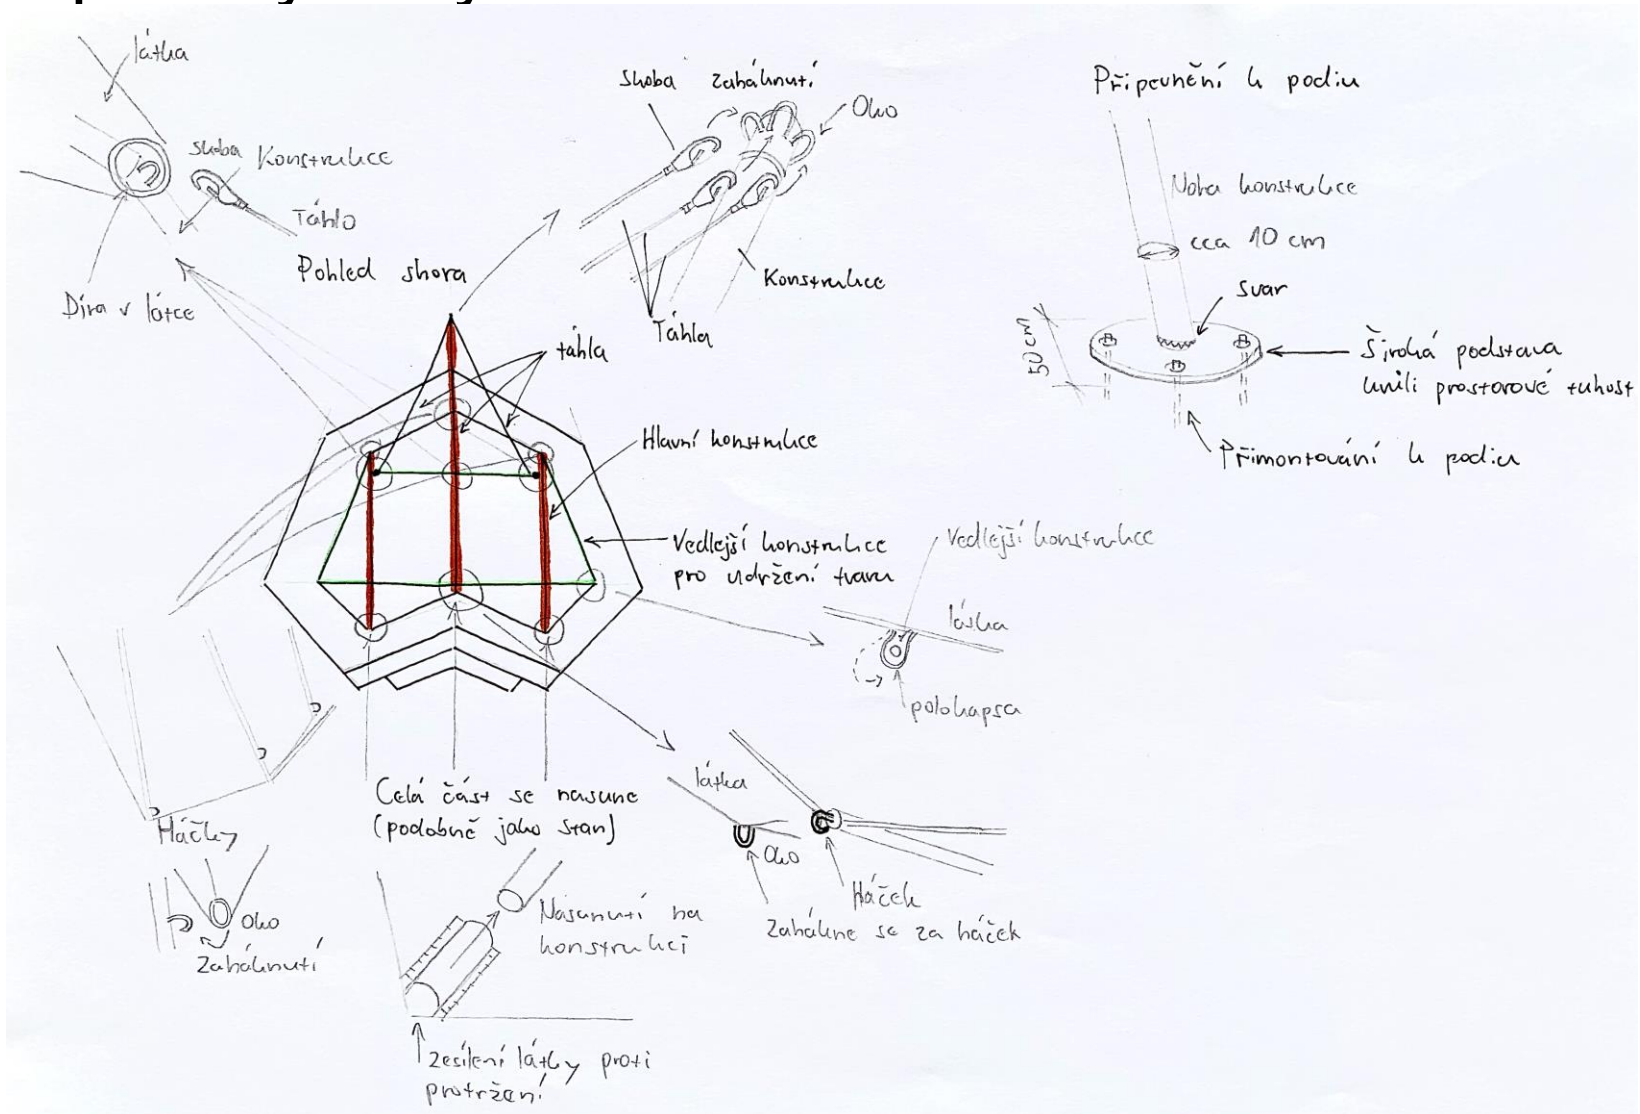 látka
skoba
Konstrukce
Táhlo
Díra v látce
Pohled shora
skoba zaháknutí
Oko
Konstrukce
Táhla
Připevnění k podiu
Noha konstrukce
cca 10 cm
svar
50 cm
Široká podstava
kvůli prostorové tuhosti
Přimontování k podiu
táhla
Hlavní konstrukce
Vedlejší konstrukce
pro udržení tvaru
Vedlejší konstrukce
látka
polokapsa
Celá část se nasune
(podobně jako stan)
látka
Oko
Háček
Zahákne se za háček
Háčky
Oko
Zaháknutí
Nasunutí na
konstrukci
Zesílení látky proti
protržení